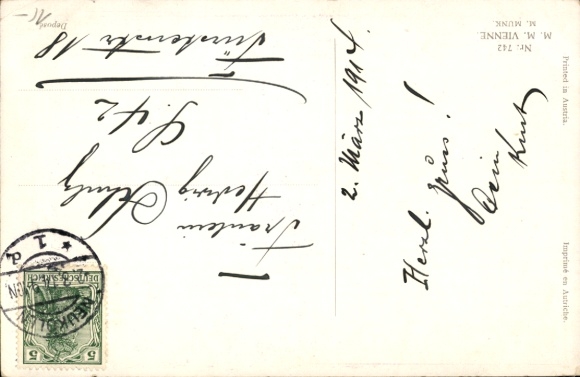 Nr. 742
M. M. VIENNE.
M. MUNK.
Printed in Austria.
Imprimé en Autriche.
2. März 1914.
Herzl. Gruss!
Dein
Kurt
Fräulein
Hedwig Schulz
S. 42
Fürstenstr 18
Deposé
DEUTSCHES REICH
5 5
NEUKÖLLN
* 1 d